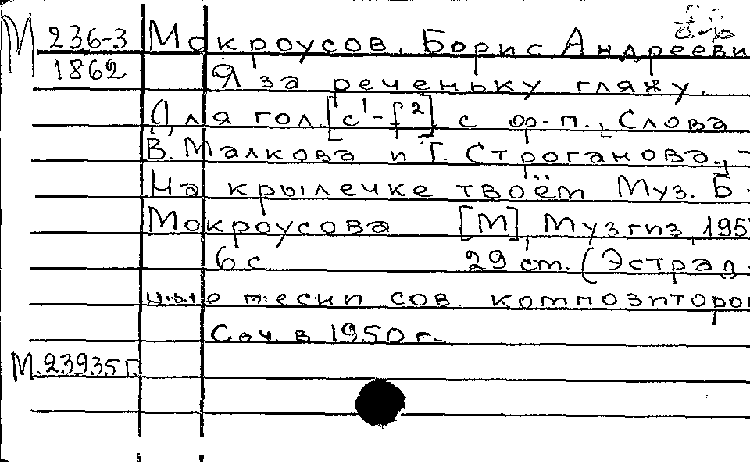 М 236-3 Мокроусов, Борис Андрееви
1862 Я за реченьку гляжу.
Для гол. [c¹-f²] с ф-п. Слова
В. Малкова и Г. Строганова, -
На крылечке твоём Муз. Б.
Мокроусова [М], Музгиз, 195
6 с 29 см. (Эстрад-
ные песни сов. композиторо
Соч. в 1950 г.
М.23935 г.